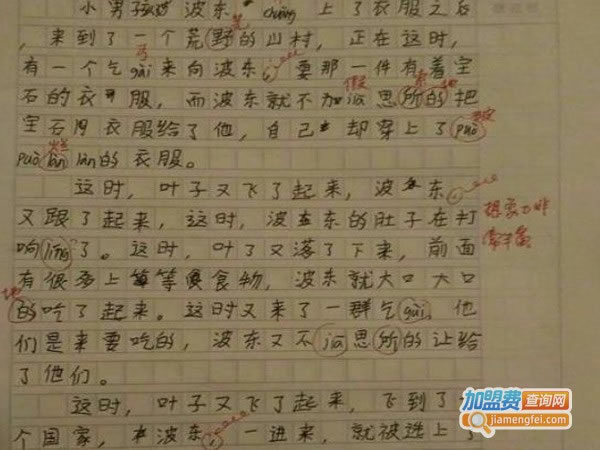 小男孩 波东 chuāng 上了衣服之后
，来到了一个荒野的山村，正在这时，
有一个乞gài来向波东，要那一件有着宝
石的衣服，而波东就不加jiǎ思所的把
宝石 衣服给了他，自己却穿上了può
può làn làn的衣服。
这时，叶子又飞了起来，波东，
又跟了起来，这时，波东的肚子在打
响líng了。这时，叶子又落了下来，前面
有很多上等食物，波东就大口大口
的吃了起来。这时又来了一群乞gài，他
们是来要吃的，波东又不jiǎ思所的让给
了他们。
这时，叶子又飞了起来，飞到了一
个国家，波东，一进来，就被选上了
想象力非
常丰富
加盟费查询网
jiamengfei.com